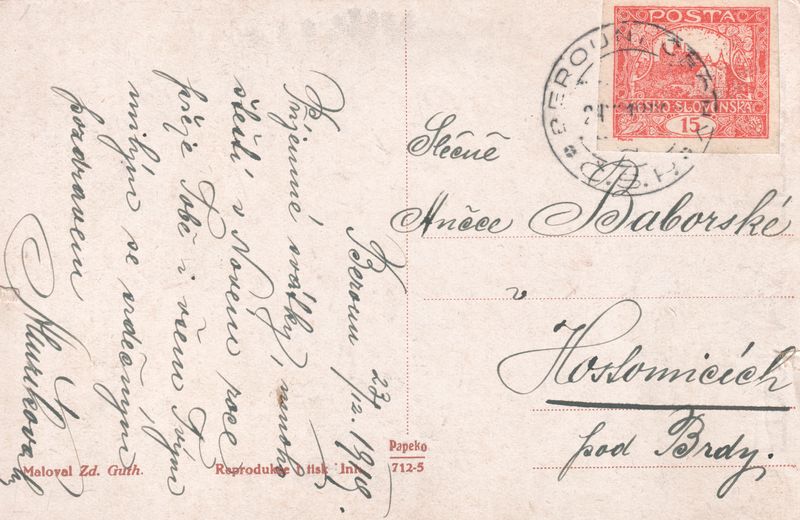 Beroun 23/12. 1919.
Příjemné svátky, mnoho
štěstí v Novém roce
přeje Tobě i všem Tvým
milým se srdečným
pozdravem
Slečně
Anäce Baborské
v
Hostomicích
pod Brdy.
POSTA
SLOVENSKÁ
15
BEROUN
Papeko
712-5
Maloval Zd. Guth.
Reprodukce i tisk